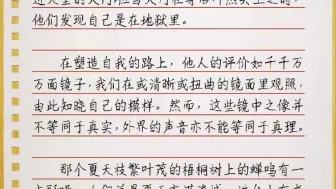 他们发现自己是在地狱里。
在塑造自我的路上，他人的评价如千千万
万面镜子，我们在或清晰或扭曲的镜面里观照，
由此知晓自己的模样。然而，这些镜中之像并
不等同于真实，外界的声音亦不能等同于真理。
那个夏天枝繁叶茂的梧桐树上的蝉鸣有一